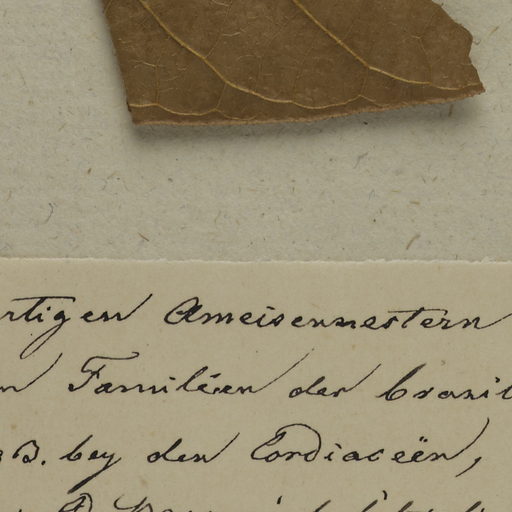 rtigen Ameisennestern
n Familien der brasil
z. B. bey den Cordiaceën,